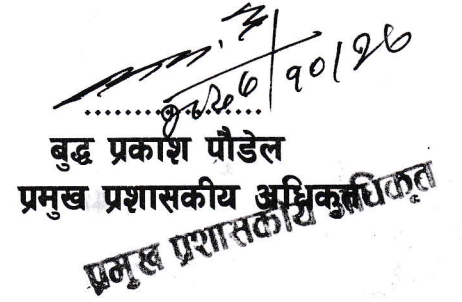 २०७६/१०/२६
बुद्ध प्रकाश पौडेल
प्रमुख प्रशासकीय अधिकृत
प्रमुख प्रशासकीय अधिकृत